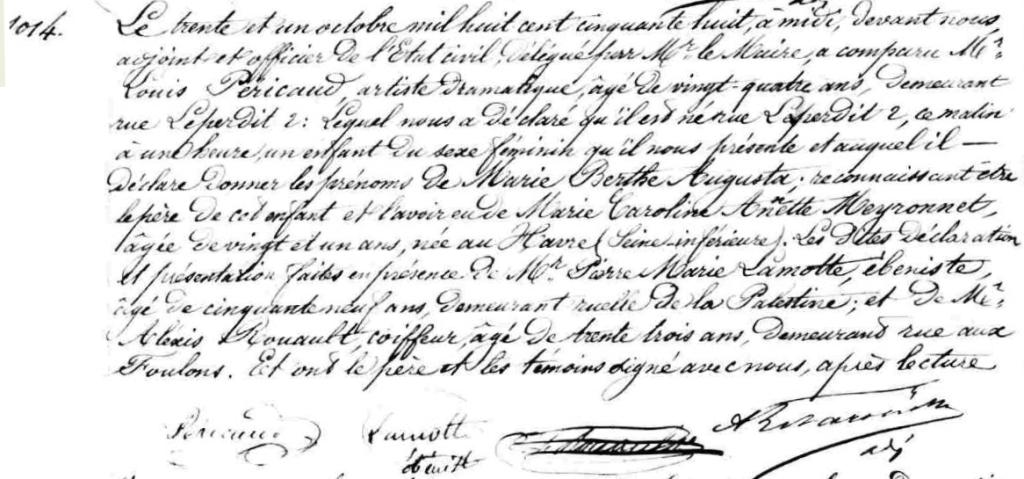 1014.
Le trente et un octobre mil huit cent cinquante huit, à midi, devant nous,
adjoint et officier de l'Etat civil, délégué par Mr. le Maire, a comparu Mr.
Louis Péricaud, artiste dramatique, âgé de vingt-quatre ans, demeurant
rue Leperdit 2: Lequel nous a déclaré qu'il est né rue Leperdit 2, ce matin
à une heure, un enfant du sexe féminin qu'il nous présente et auquel il —
déclare donner les prénoms de Marie Berthe Augusta; reconnaissant être
le père de cet enfant et l'avoir eu de Marie Caroline Anette Meyronnet,
âgée de vingt et un ans, née au Havre (Seine-inférieure). Les dites déclaration
et présentation faites en présence de Mr. Pierre Marie Lamotte, ébeniste,
âgé de cinquante neuf ans, demeurant ruelle de la Palestine; et de Mr.
Alexis Rouault, coiffeur, âgé de trente trois ans, demeurant rue aux
Foulons. Et ont le père et les témoins signé avec nous, après lecture
Péricaud Lamotte
ébenist
adj